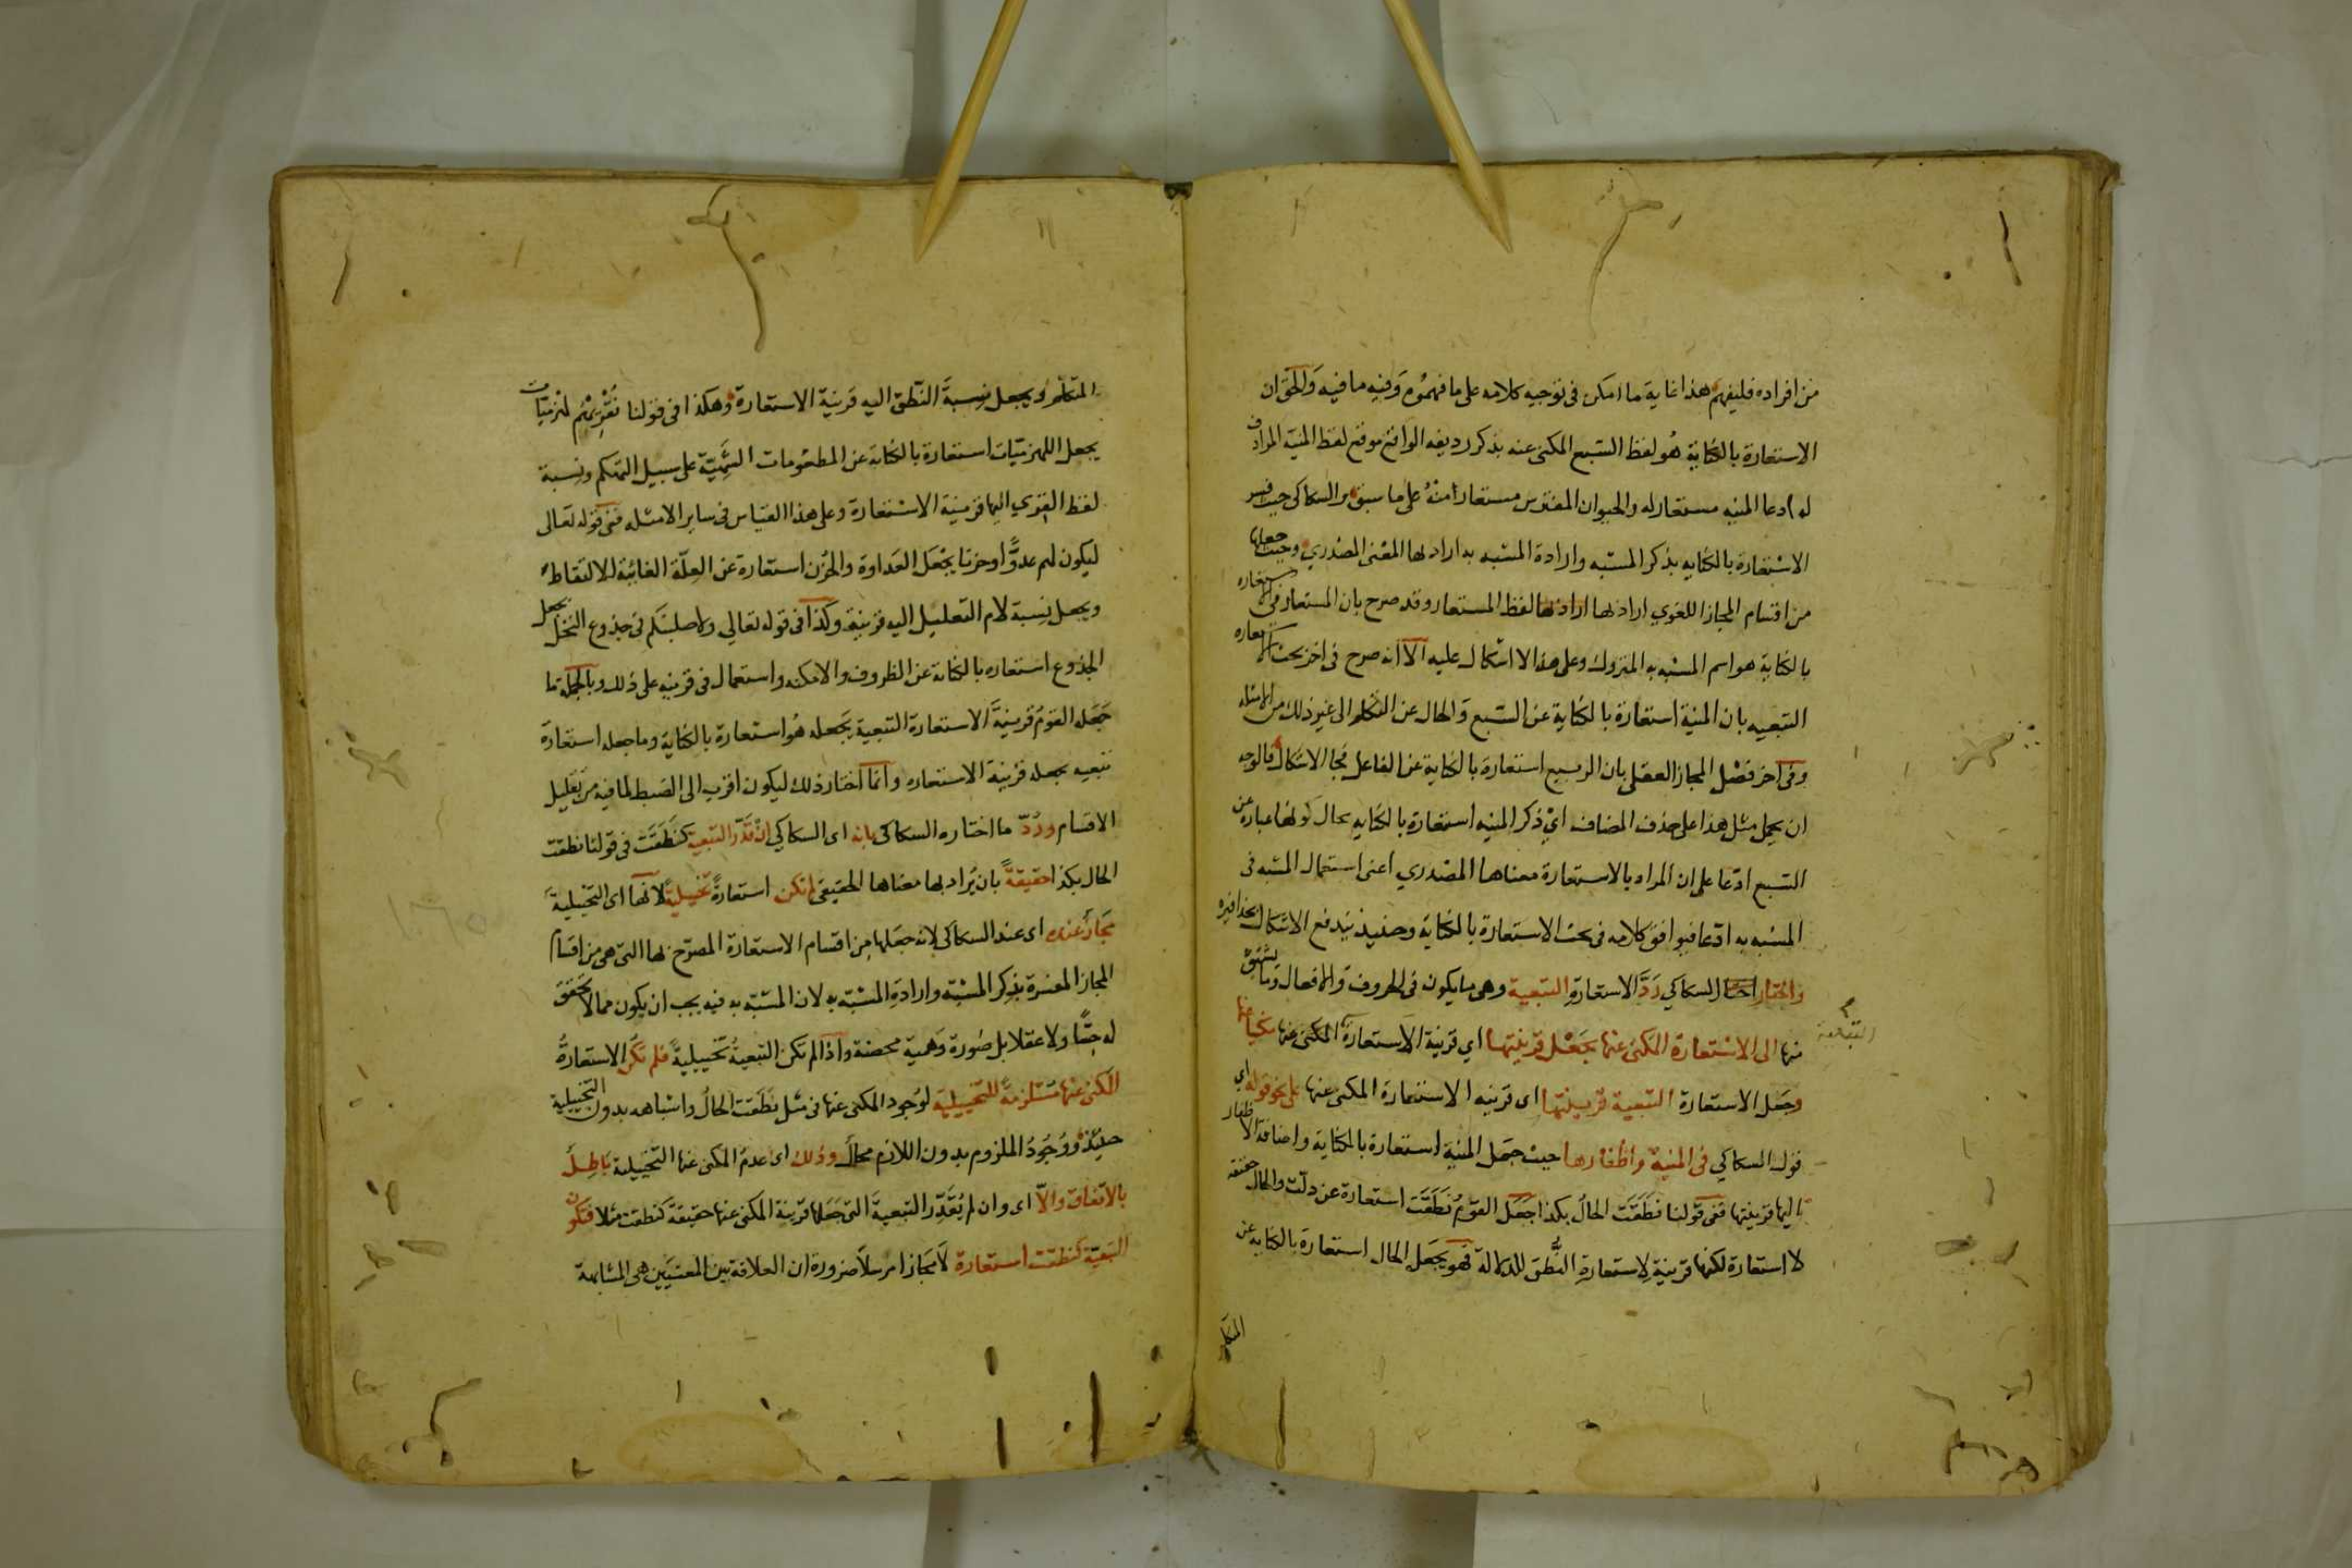 من افراده فليفهم هذا غاية ما امكن في توجيه كلامه على ما فهموه وفيه ما فيه والحق ان
الاستعارة بالكناية هو لفظ السبع المكنى عنه بذكر رديفه الواقع موقع لفظ المنية المرادف
له ادعا المنيه مستعار له والحيوان المفترس مستعارا منه على ما سبق السكاكي حيث فسر
الاستعارة بالكنايه بذكر المشبه وارادة المشبه به اراد لها المعنى المصدري وحيث جعلها
من اقسام المجاز اللغوي اراد بها اراد بها لفظ المستعار وقد صرح بان المستعار في الاستعاره
بالكناية هو اسم المشبه به المتروك وعلى هذا لا اشكال عليه الا انه صرح في اخر بحث الاستعاره
التبعيه بان المنية استعارة بالكناية عن السبع والحال عن المتكلم الى غير ذلك من الامثله
وفى اخر فصل المجاز العقلي بان الربيع استعارة بالكناية عن الفاعل فجا الاشكال فالوجه
ان يحمل مثل هذا على حذف المضاف اي ذكر المنيه استعارة بالكنايه حال كونها عبارة عن
السبع ادعا على ان المراد بالاستعارة معناها المصدري اعنى استعمال المشبه في
المشبه به ادعا فيوافق كلامه في بحث الاستعارة بالكناية وحينيذ يندفع الاشكال بحذافيره
واختار السكاكي رد الاستعارة التبعية وهي ما يكون في الحروف والافعال وما يشتق
منها الى الاستعارة المكنى عنها بجعل قرينتها اي قرينة الاستعارة المكنى عنها
التبعية
وجعل الاستعارة التبعية قرينتها اى قرينه الاستعارة المكنى عنها على نحو قوله اي
قول السكاكي في المنية واظفارها حيث جعل المنية استعارة بالكناية واضافة الاظفار
اليها قرينتها ففي قولنا نطقت الحال بكذا جعل القوم نطقت استعارة عن دلت والحال حقيقة
لا استعارة لكنها قرينة لاستعارة النطق للدلالة فهو يجعل الحال استعارة بالكنايه عن
المتكلم
المتكلم ويجعل نسبة النطق اليه قرينة الاستعارة وهكذا في قولنا نقريهم لهزميات
يجعل اللهزميات استعارة بالكناية عن المطعومات الشهية على سبيل التهكم ونسبة
لفظ القري اليها قرينة الاستعارة وعلى هذا القياس في ساير الامثله ففى قوله تعالى
ليكون لهم عدوا وحزنا يجعل العداوة والحزن استعارة عن العلة الغائية للالتقاط
ويجعل نسبة لام التعليل اليه قرينة وكذا في قوله تعالي ولاصلبنكم في جذوع النخل يجعل
الجذوع استعاره بالكناية عن الظروف والامكنه واستعمال في قرينه على ذلك وبالجملة ما
جعله القوم قرينة الاستعارة التبعية يجعله هو استعارة بالكناية وما جعله استعارة
تبعيه يجعله قرينة الاستعاره وانما اختار ذلك ليكون اقرب الى الضبط لما فيه من تقليل
الاقسام ورد ما اختاره السكاكي بانه اى السكاكي ان قدر التبعية كنطقت في قولنا نطقت
الحال بكذا حقيقة بان يراد بها معناها الحقيقى لم تكن استعارة تخييلية لانها اى التخييلية
مجاز عنده اى عند السكاكي لانه جعلها من اقسام الاستعارة المصرح بها التي هي من اقسام
المجاز المفسرة بذكر المشبه وارادة المشبه به لان المشبه به فيه يجب ان يكون مما لا تحقق
له حسا ولا عقلا بل صورة وهمية محضة واذا لم تكن التبعية تخييلية فلم تكن الاستعارة
المكنى عنها مستلزمة للتخييلية لوجود المكنى عنها في مثل نطقت الحال واشباهه بدون التخييلية
حينئذ ووجود الملزوم بدون اللازم محال وذلك اى عدم المكنى عنها التخييلية باطل
بالاتفاق والا اى وان لم يقدر التبعية التى جعلها قرينة المكنى عنها حقيقة كنطقت مثلا فتكون
التبعية كنطقت استعارة لا مجازا مرسلا ضرورة ان العلاقة بين المعنيين هي المشابهة